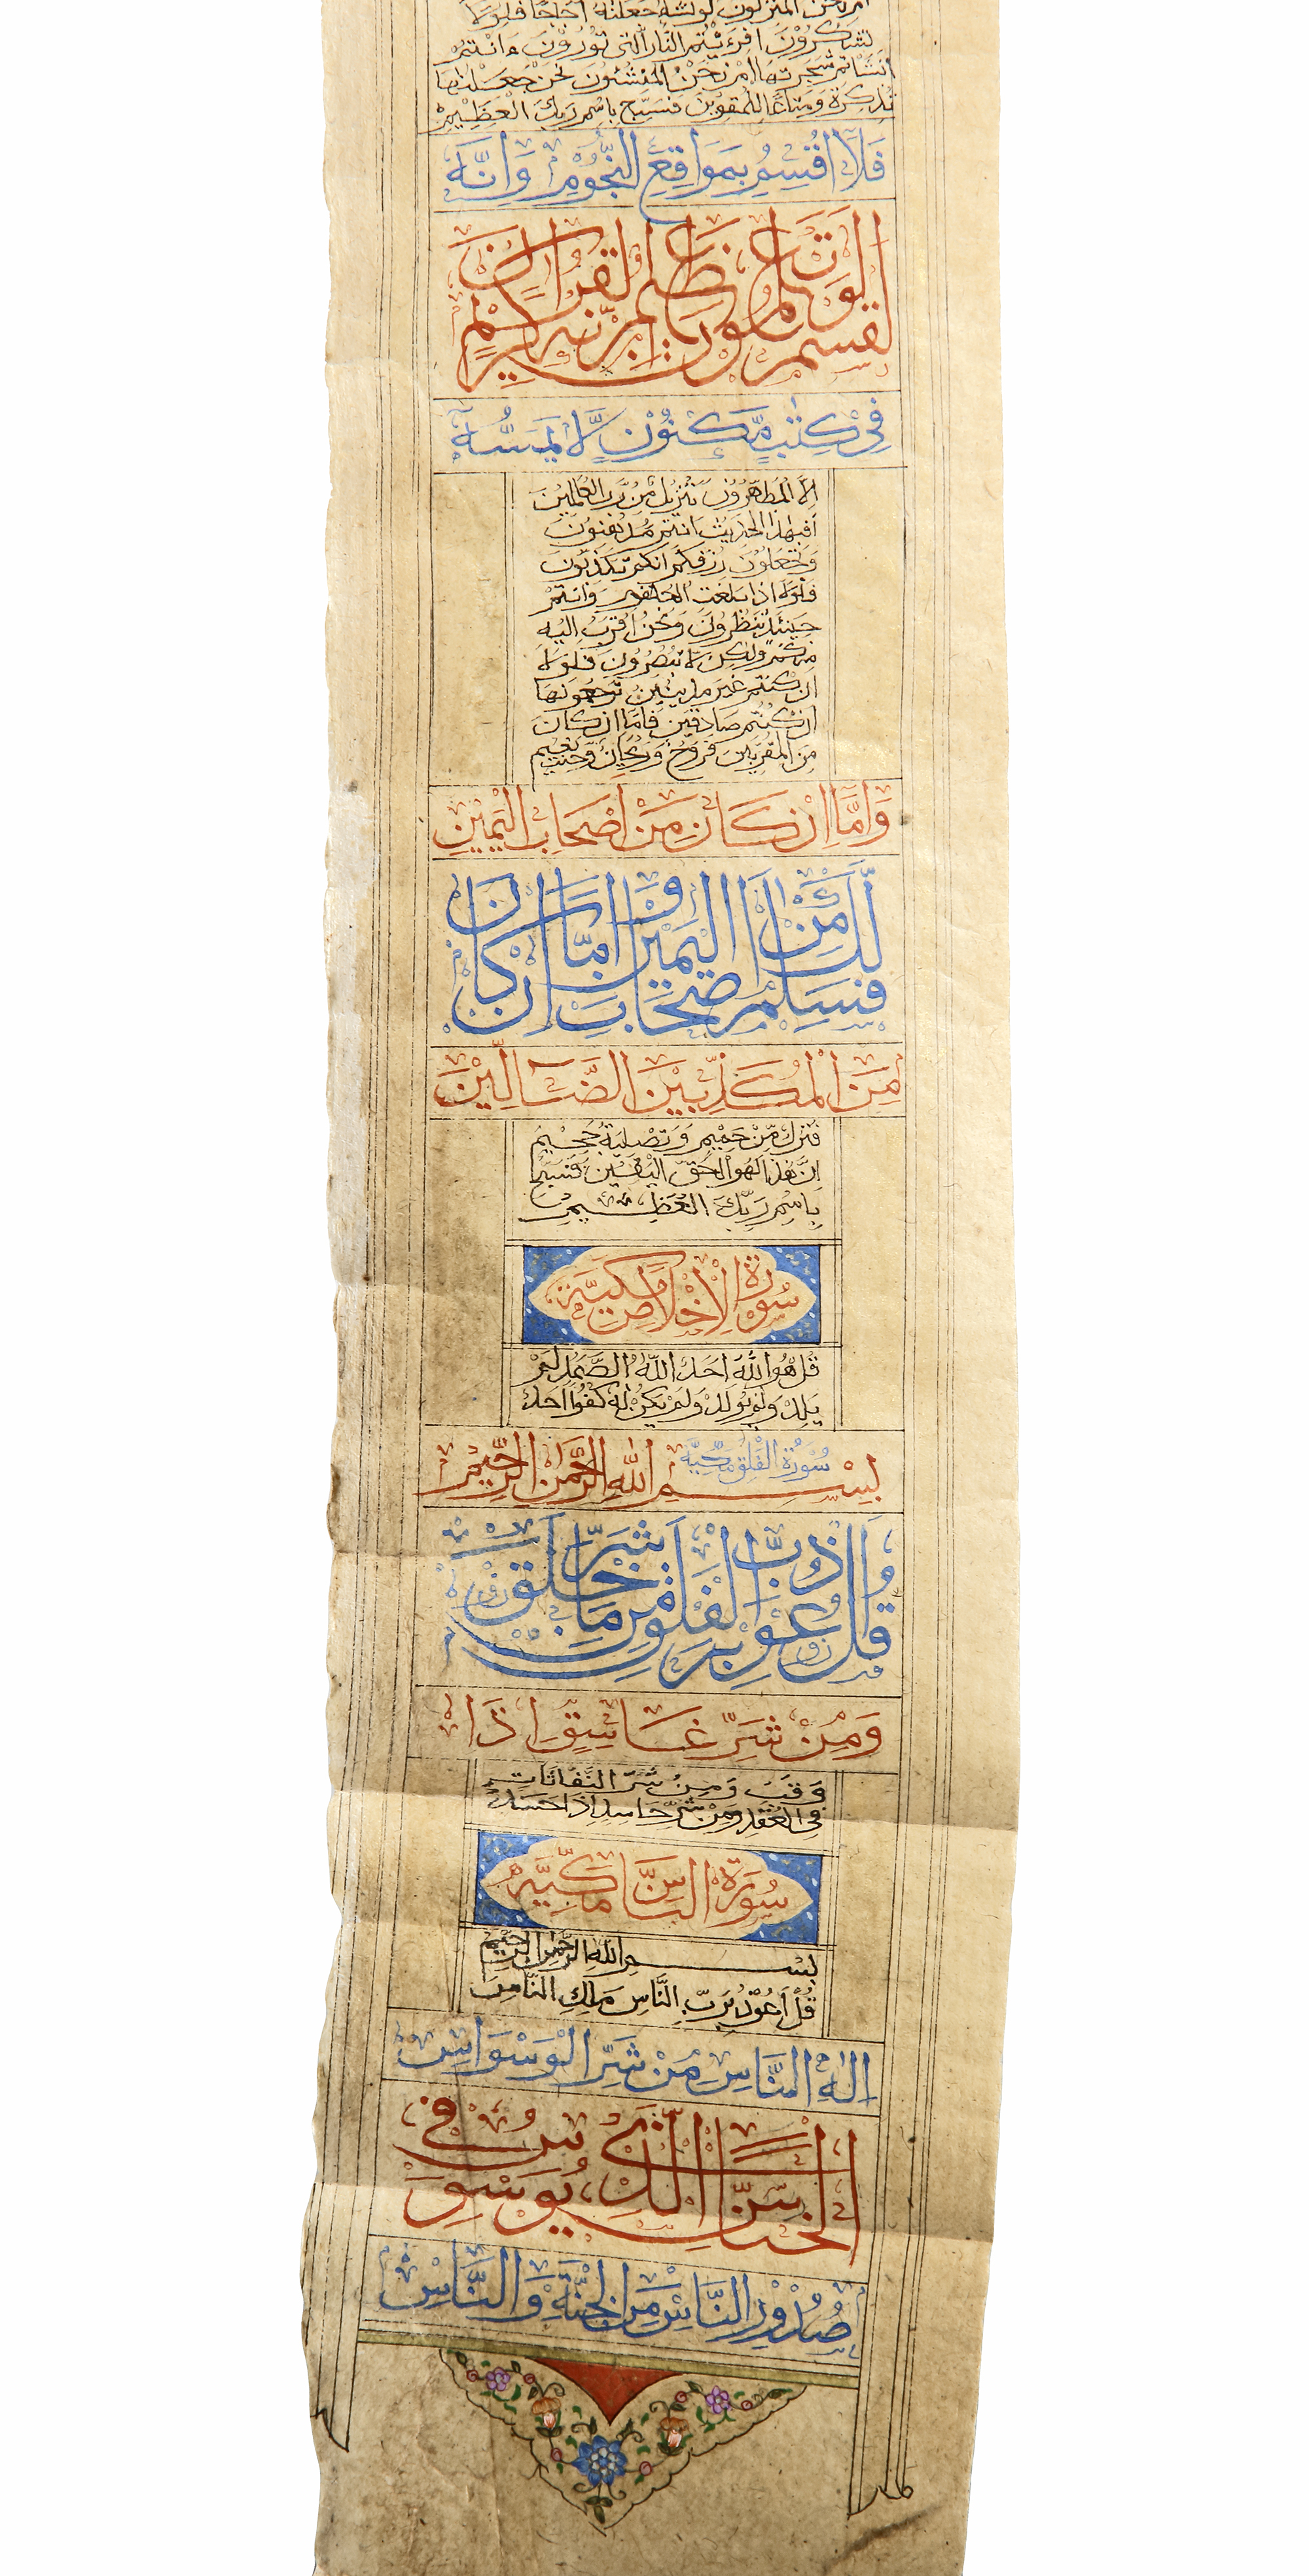 ام نحن المنزلون لونشاء جعلنه اجاجا فلولا
تشكرون افرءيتم النار التى تورون ءانتم
انشاتم شجرتها ام نحن المنشئون نحن جعلناها
تذكرة ومتاعا للمقوين فسبح باسم ربك العظيم
فَلَا اُقْسِمُ بِمَوَاقِعِ النُّجُومِ وَاِنَّهُ
لقسم لو تعلمون عظيم انه لقران كريم
فِى كِتٰبٍ مَّكْنُوْنٍ لَّا يَمَسُّهٗ
الا المطهرون تنزيل من رب العالمين
افبهذا الحديث انتم مدهنون
وتجعلون رزقكم انكم تكذبون
فلولا اذا بلغت الحلقوم وانتم
حينئذ تنظرون ونحن اقرب اليه
منكم ولكن لا تبصرون فلولا
ان كنتم غير مدينين ترجعونها
ان كنتم صادقين فاما ان كان
من المقربين فروح وريحان وجنت نعيم
وَاَمَّا اِنْ كَانَ مِنْ اَصْحَابِ الْيَمِيْنِ
فسلم لك من اصحاب اليمين واما ان كان
مِنَ الْمُكَذِّبِيْنَ الضَّالِّيْنَ
فنزل من حميم وتصلية جحيم
ان هذا لهو الحق اليقين فسبح
باسم ربك العظيم
سورة الاخلاص مكية
قل هو الله احد الله الصمد لم
يلد ولم يولد ولم يكن له كفوا احد
سورة الفلق مكية
بسم الله الرحمن الرحيم
قل اعوذ برب الفلق من شر ما خلق
وَمِنْ شَرِّ غَاسِقٍ اِذَا
وقب ومن شر النفاثات
فى العقد ومن شر حاسد اذا حسد
سورة الناس مكية
بسم الله الرحمن الرحيم
قل اعوذ برب الناس ملك الناس
اله الناس من شر الوسواس
الخناس الذى يوسوس فى
صدور الناس من الجنة والناس